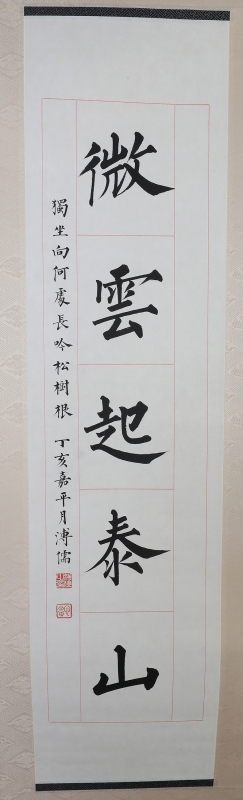 微雲起泰山
獨坐向何處長吟松樹根 丁亥嘉平月溥儒